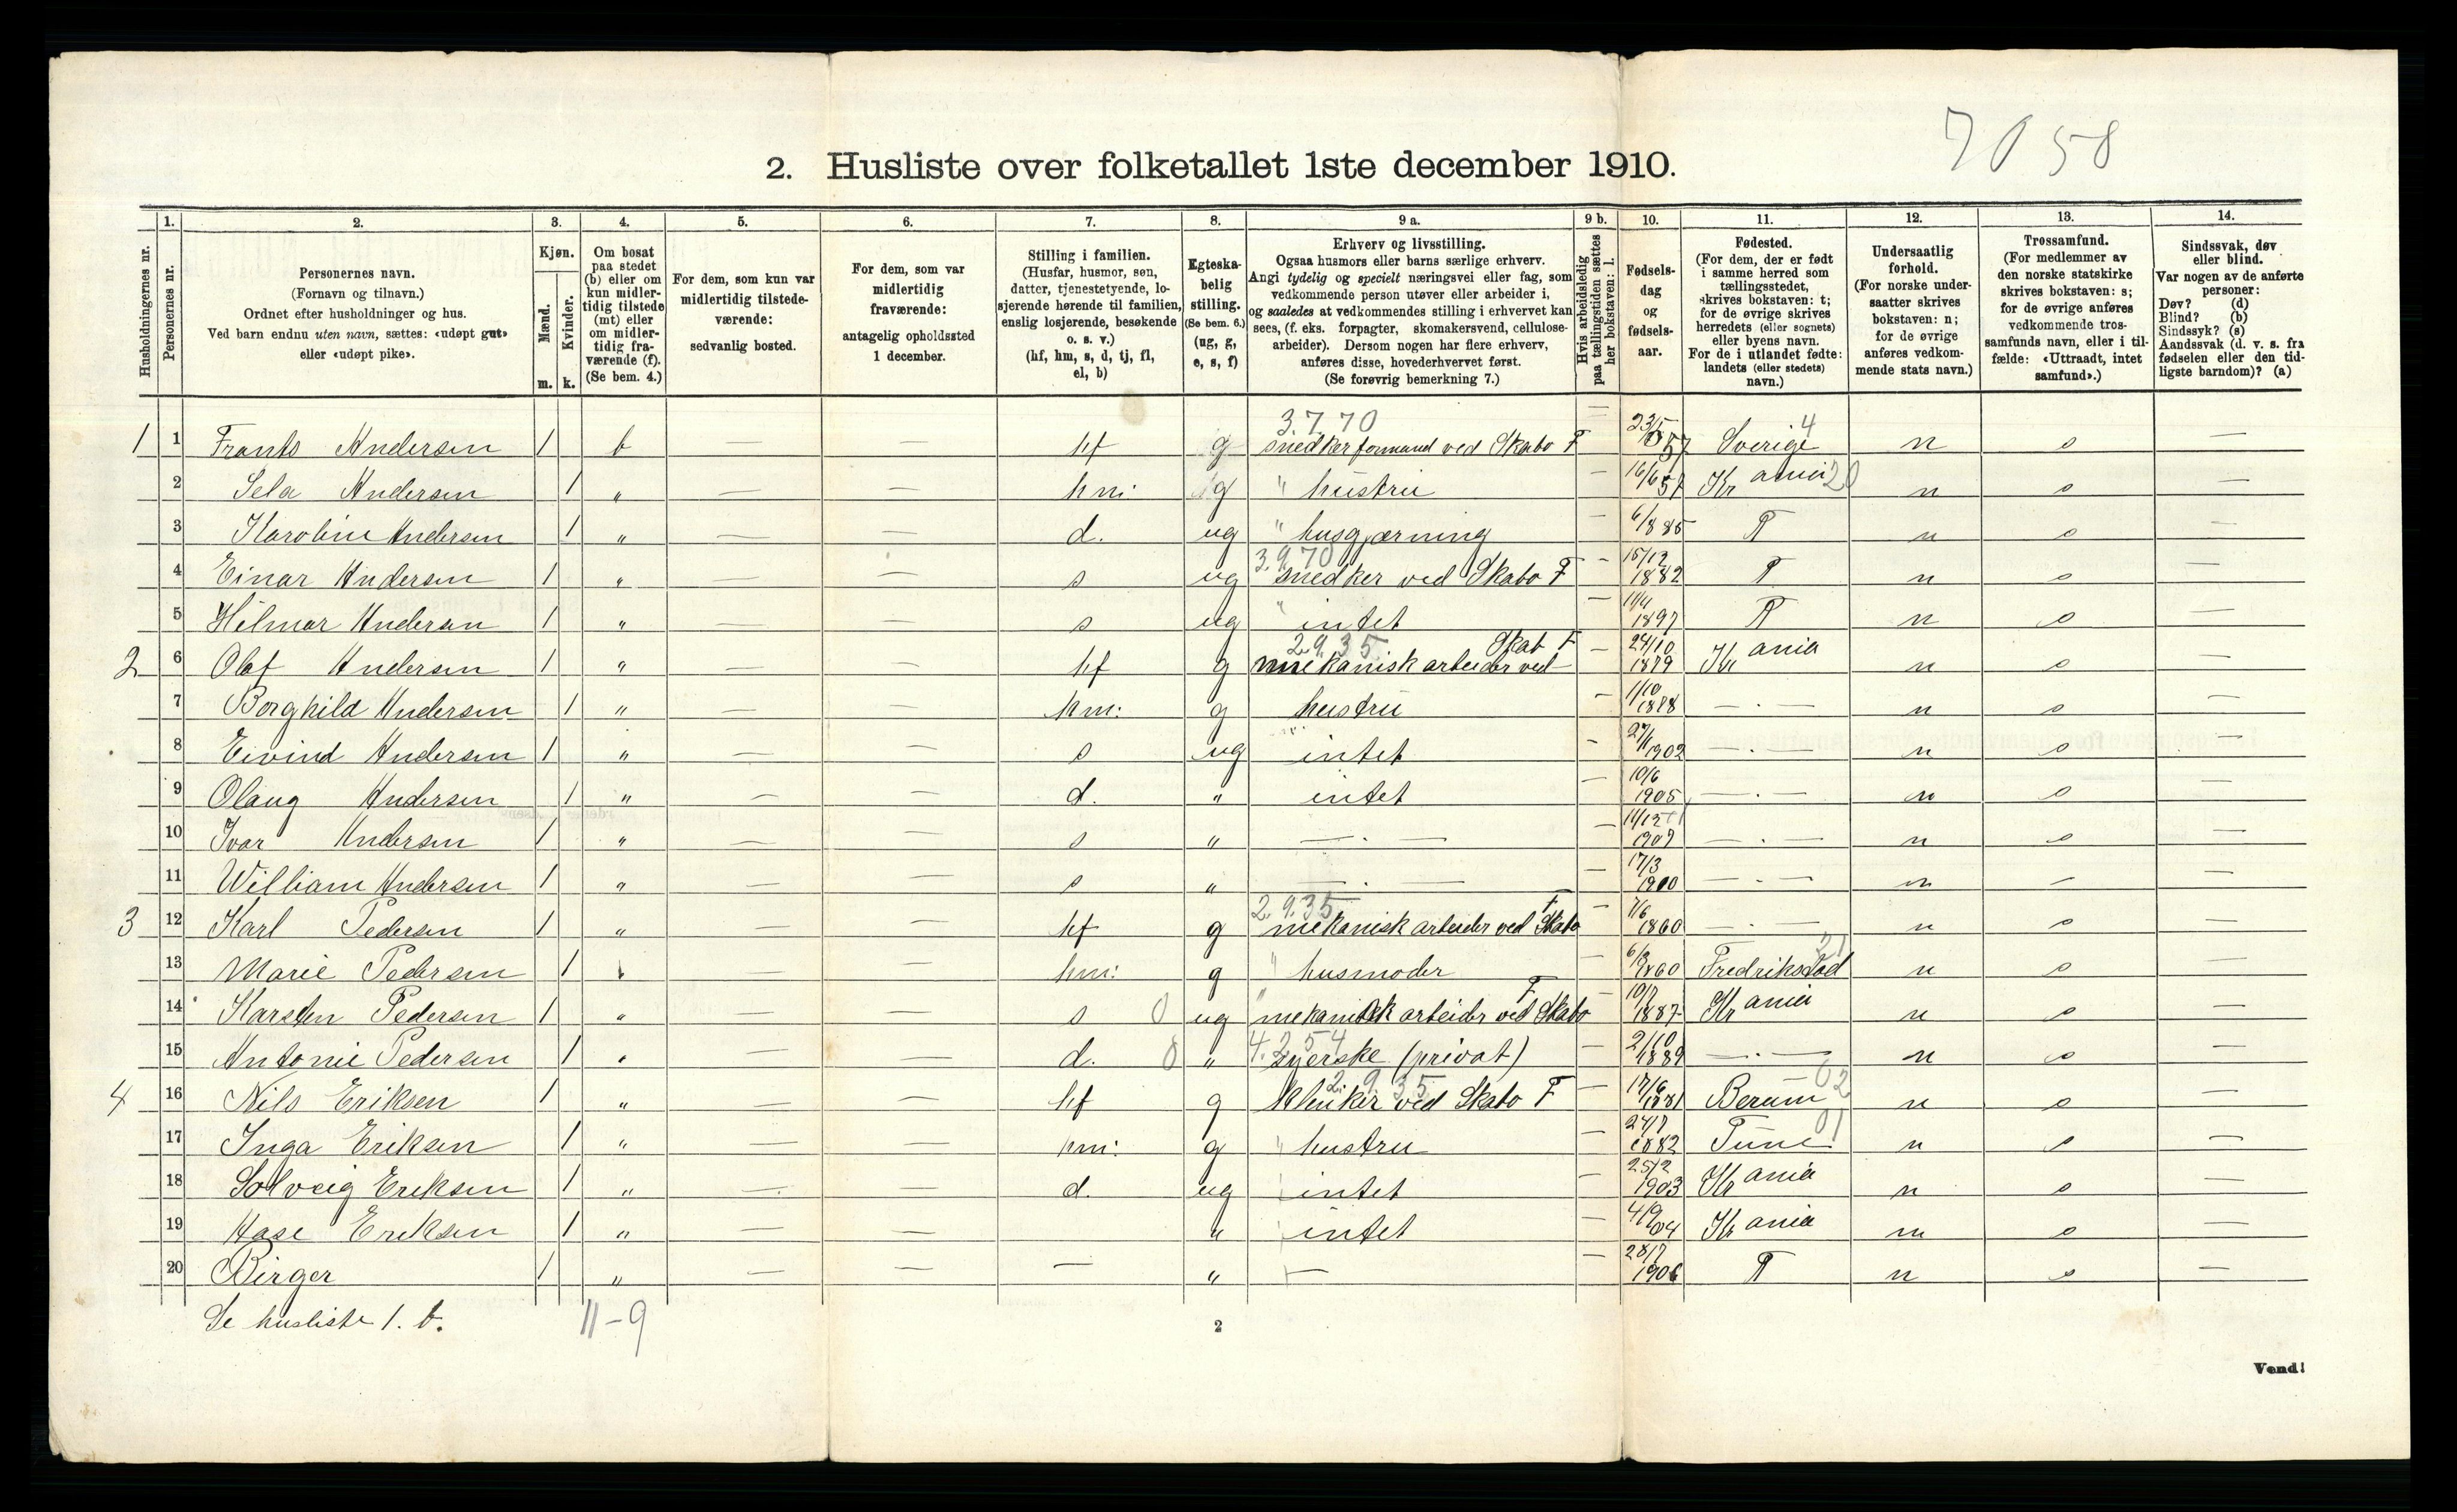 7058
2. Husliste over folketallet 1ste december 1910.
Husholdningernes nr.
1. Personernes nr.
2. Personernes navn.
(Fornavn og tilnavn.)
Ordnet efter husholdninger og hus.
Ved barn endnu uten navn, sættes: «udøpt gut»
eller «udøpt pike».
3. Kjøn.
Mænd. m.
Kvinder. k.
4. Om bosat
paa stedet
(b) eller om
kun midler-
tidig tilstede
(mt) eller
om midler-
tidig fra-
værende (f).
(Se bem. 4.)
5. For dem, som kun var
midlertidig tilstede-
værende:
sedvanlig bosted.
6. For dem, som var
midlertidig
fraværende:
antagelig opholdssted
1 december.
7. Stilling i familien.
(Husfar, husmor, søn,
datter, tjenestetyende, lo-
sjerende hørende til familien,
enslig losjerende, besøkende
o. s. v.)
(hf, hm, s, d, tj, fl,
el, b)
8. Egteska-
belig
stilling.
(Se bem. 6.)
(ug, g,
e, s, f)
9 a. Erhverv og livsstilling.
Ogsaa husmors eller barns særlige erhverv.
Angi tydelig og specielt næringsvei eller fag, som
vedkommende person utøver eller arbeider i,
og saaledes at vedkommendes stilling i erhvervet kan
sees, (f. eks. forpagter, skomakersvend, cellulose-
arbeider). Dersom nogen har flere erhverv,
anføres disse, hovederhvervet først.
(Se forøvrig bemerkning 7.)
9 b. Hvis arbeidsledig
paa tællingstiden sættes
her bokstaven: l.
10. Fødsels-
dag
og
fødsels-
aar.
11. Fødested.
(For dem, der er født
i samme herred som
tællingsstedet,
skrives bokstaven: t;
for de øvrige skrives
herredets (eller sognets)
eller byens navn.
For de i utlandet fødte:
landets (eller stedets)
navn.)
12. Undersaatlig
forhold.
(For norske under-
saatter skrives
bokstaven: n;
for de øvrige
anføres vedkom-
mende stats navn.)
13. Trossamfund.
(For medlemmer av
den norske statskirke
skrives bokstaven: s;
for de øvrige anføres
vedkommende tros-
samfunds navn, eller i til-
fælde: «Uttraadt, intet
samfund».)
14. Sindssvak, døv
eller blind.
Var nogen av de anførte
personer:
Døv? (d)
Blind? (b)
Sindssyk? (s)
Aandssvak (d. v. s. fra
fødselen eller den tid-
ligste barndom)? (a)
3.7.70
1 1 Frants Andersen 1 b — — hf g snedkerformand ved Skabo F — 23/5 57 Sverige 4 n s —
2 Andersen 1 " — — hm: g " hustru — 16/6 57 Kr ania 20 n s —
3 Karoline Andersen 1 " — — d. ug " husgjerning — 6/1 885 T n s —
3.9.70
4 Einar Andersen 1 " — — s ug " snedker ved Skabo F — 15/12 1882 T n s —
5 Hilmar Andersen 1 " — — s ug " intet — 11/4 1897 T n s —
2.9.35 Skab F
2 6 Olaf Andersen 1 " — — hf g mekanisk arbeider ved — 24/10 1879 Kr ania n s —
7 Borghild Andersen 1 " — — hm: g hustru — 1/10 1888 — . — n s —
8 Eivind Andersen 1 " — — s ug intet — 27/11 1902 — . — n s —
9 Olaug Andersen 1 " — — d. " intet — 10/6 1905 — . — n s —
10 Ivar Andersen 1 " — — s " — . — — 11/12 1907 — . — n s —
11 William Andersen 1 " — — s " — . — — 17/3 1910 — . — n — —
2.9.35 F
3 12 Karl Pedersen 1 " — — hf g mekanisk arbeider ved Skabo — 7/6 1860 — . — n s —
13 Marie Pedersen 1 " — — hm: g " husmoder — 6/3 1860 Fredriksstad 21 n s —
14 Karsten Pedersen 1 " — — s 0 ug mekanisk arbeider ved Skabo F — 10/7 1887 Kr ania n s —
4.2.54
15 Antonie Pedersen 1 " — — d. 0 " syerske (privat) — 2/10 1889 — . — n s —
2.9.35
4 16 Nils Eriksen 1 " — — hf g klinker ved Skabo F — 17/6 1881 Berum 62 n s —
17 Inga Eriksen 1 " — — hm: g " hustru — 24/7 1882 Tune 01 n s —
18 Solveig Eriksen 1 " — — d. ug intet — 25/2 1903 Kr ania n s —
19 Aase Eriksen 1 " — — " intet — 4/9 04 Kr ania n s —
20 Birger 1 " — — — " — — 28/7 1906 T n s —
Se husliste 1. b.
11-9
2
Vend!